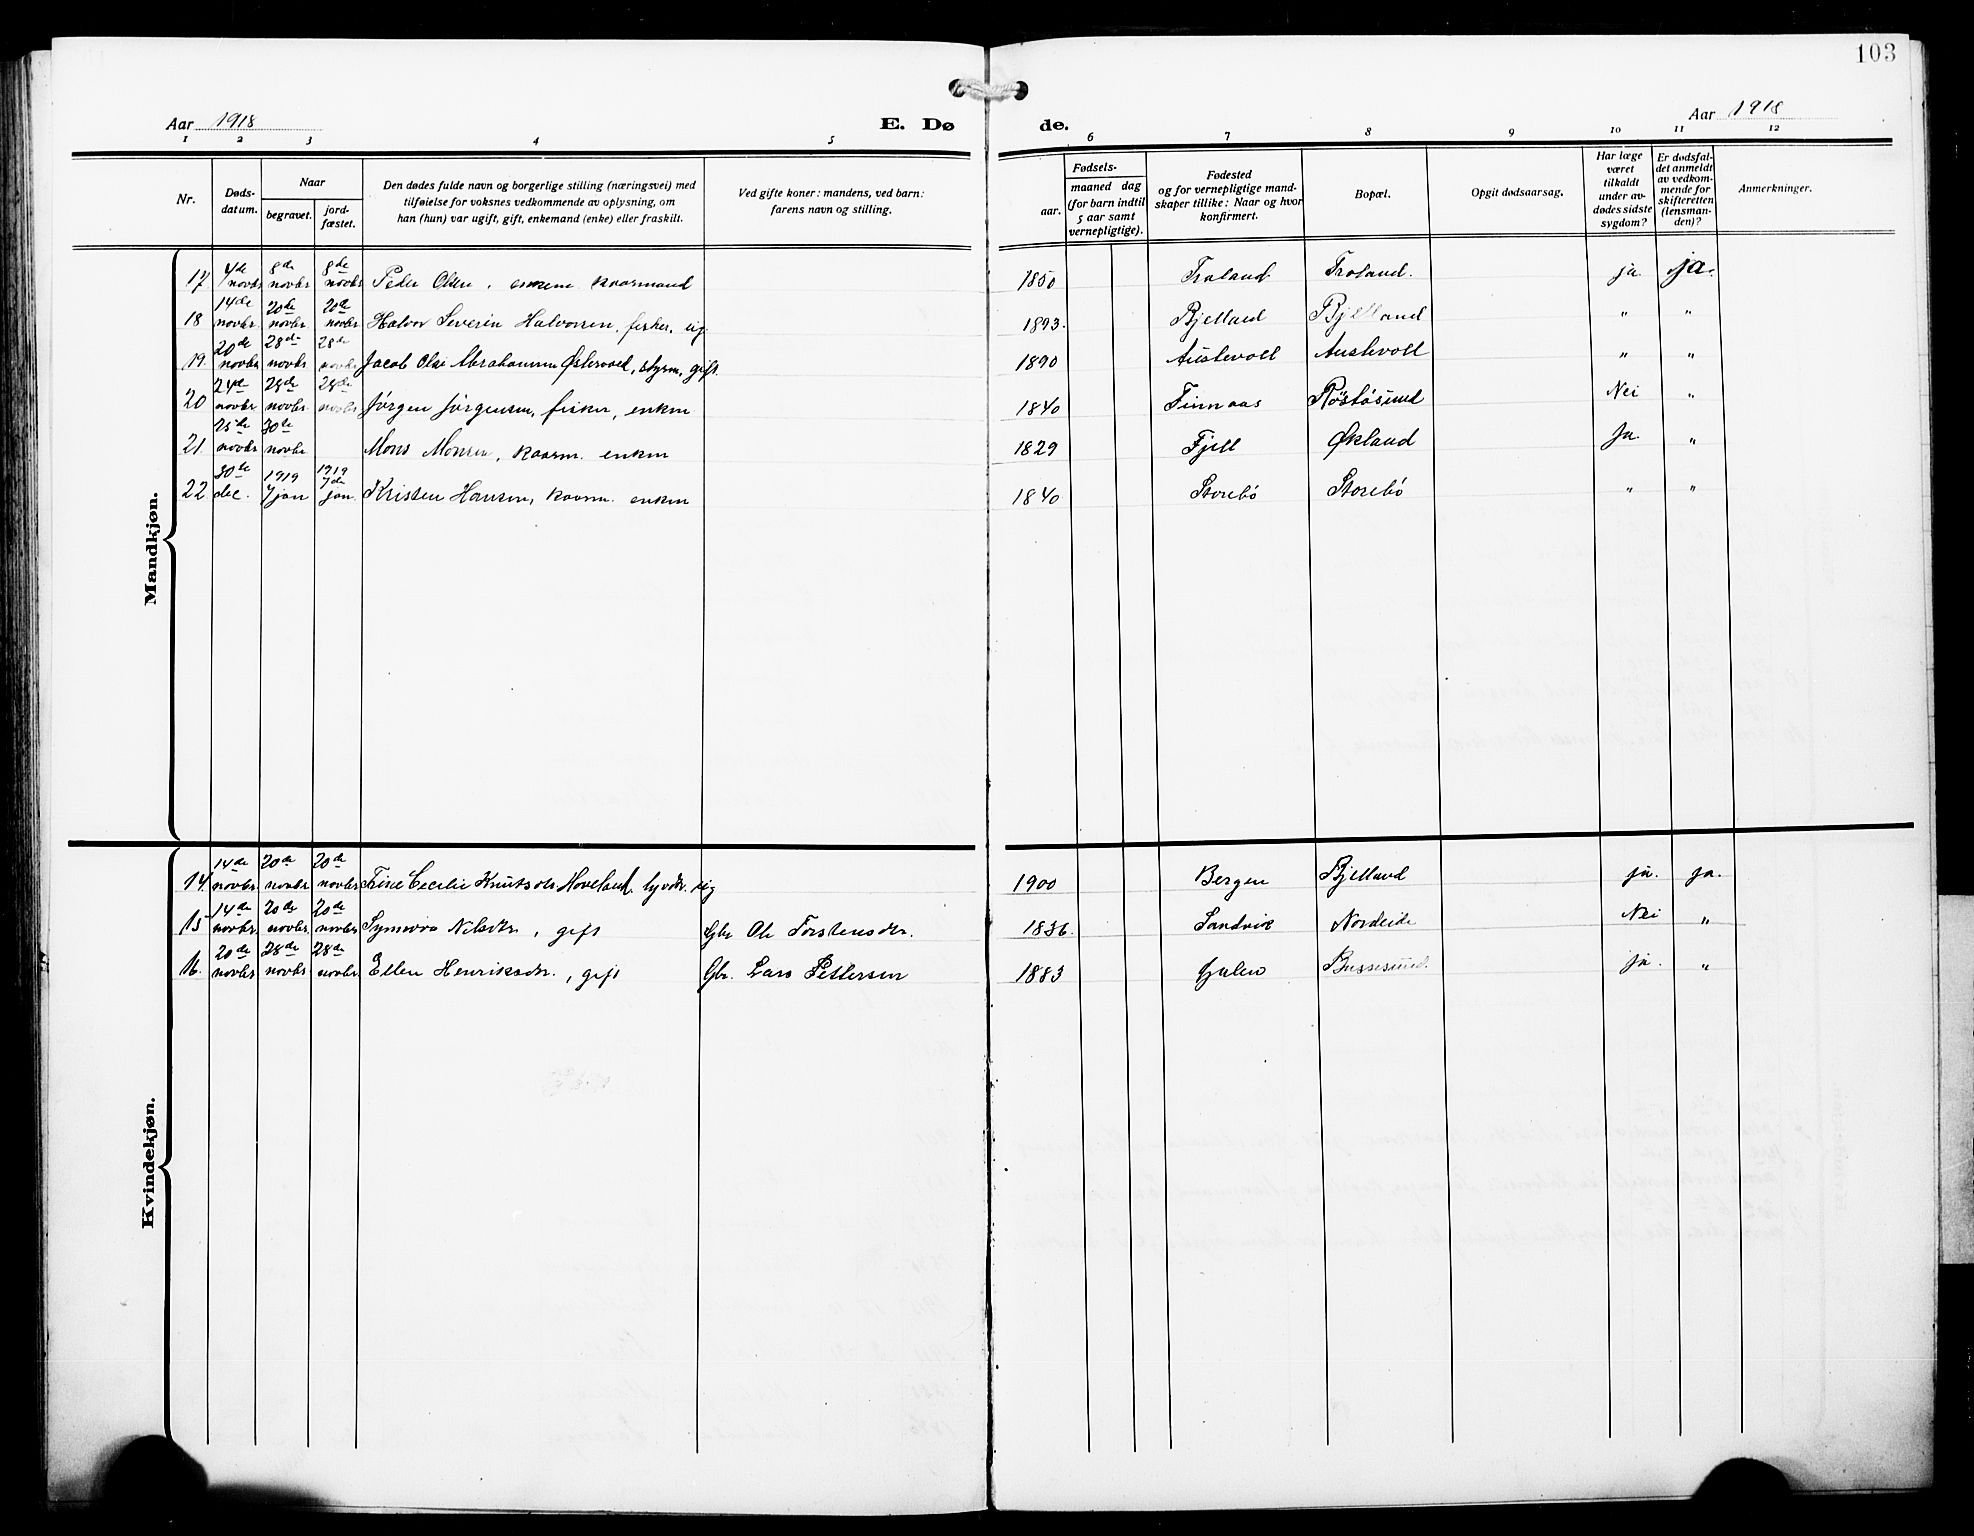 103
Aar 1918
E. Dø
de.
Aar 1918
1 2 3 4 5 6 7 8 9 10 11 12
Nr.
Døds-
datum.
Naar
begravet.
jord-
fæstet.
Den dødes fulde navn og borgerlige stilling (næringsvei) med
tilføielse for voksnes vedkommende av oplysning, om
han (hun) var ugift, gift, enkemand (enke) eller fraskilt.
Ved gifte koner: mandens, ved barn:
farens navn og stilling.
Fødsels-
aar.
maaned dag
(for barn indtil
5 aar samt
vernepligtige).
Fødested
og for vernepligtige mand-
skaper tillike: Naar og hvor
konfirmert.
Bopæl.
Opgit dødsaarsag.
Har læge
været
tilkaldt
under av-
dødes sidste
sygdom?
Er dødsfal-
det anmeldt
av vedkom-
mende for
skifteretten
(lensman-
den)?
Anmerkninger.
Mandkjøn.
17 4de novbr 8de novbr 8de novbr Peder Olsen, kaarmand 1850 Troland Troland. ja ja.
18 14de novbr. 20de novbr. 20de novbr. Halvor Severin Halvorsen, fisker, ug. 1893. Bjelland Bjelland " "
19. 20de novbr 28de novbr 28de novbr Jacob Olai Abrahamsen Østervold, styrm., gift. 1890 Austevoll Austevoll " "
20 24de novbr 28de novbr 28de novbr Jørgen Jørgensen, fisker, enkm 1840 Finnaas Røstøsund Nei "
21 25de novbr 30de novbr Mons Monsen, kaarm. enkm 1829 Fjell Økland Ja. "
22 30de dec. 1919 7 jan 1919 7de jan. Kristen Hansen, kaarm. enkm 1840 Storebø Storebø " "
Kvindekjøn.
14. 14de novbr 20de novbr 20de novbr Trine Cecilie Knutsdtr Hoveland, ug 1900 Bergen Bjelland ja. ja.
15 14de novbr 20de novbr 20de novbr Synneva Nilsdtr, gift Gbr Ole Torstensen. 1836. Sandvik Nordeide Nei "
16. 20de novbr 28de novbr 28de novbr Ellen Henriksdtr., gift Gbr. Lars Pettersen 1883 Gulen Bussesund. ja. "